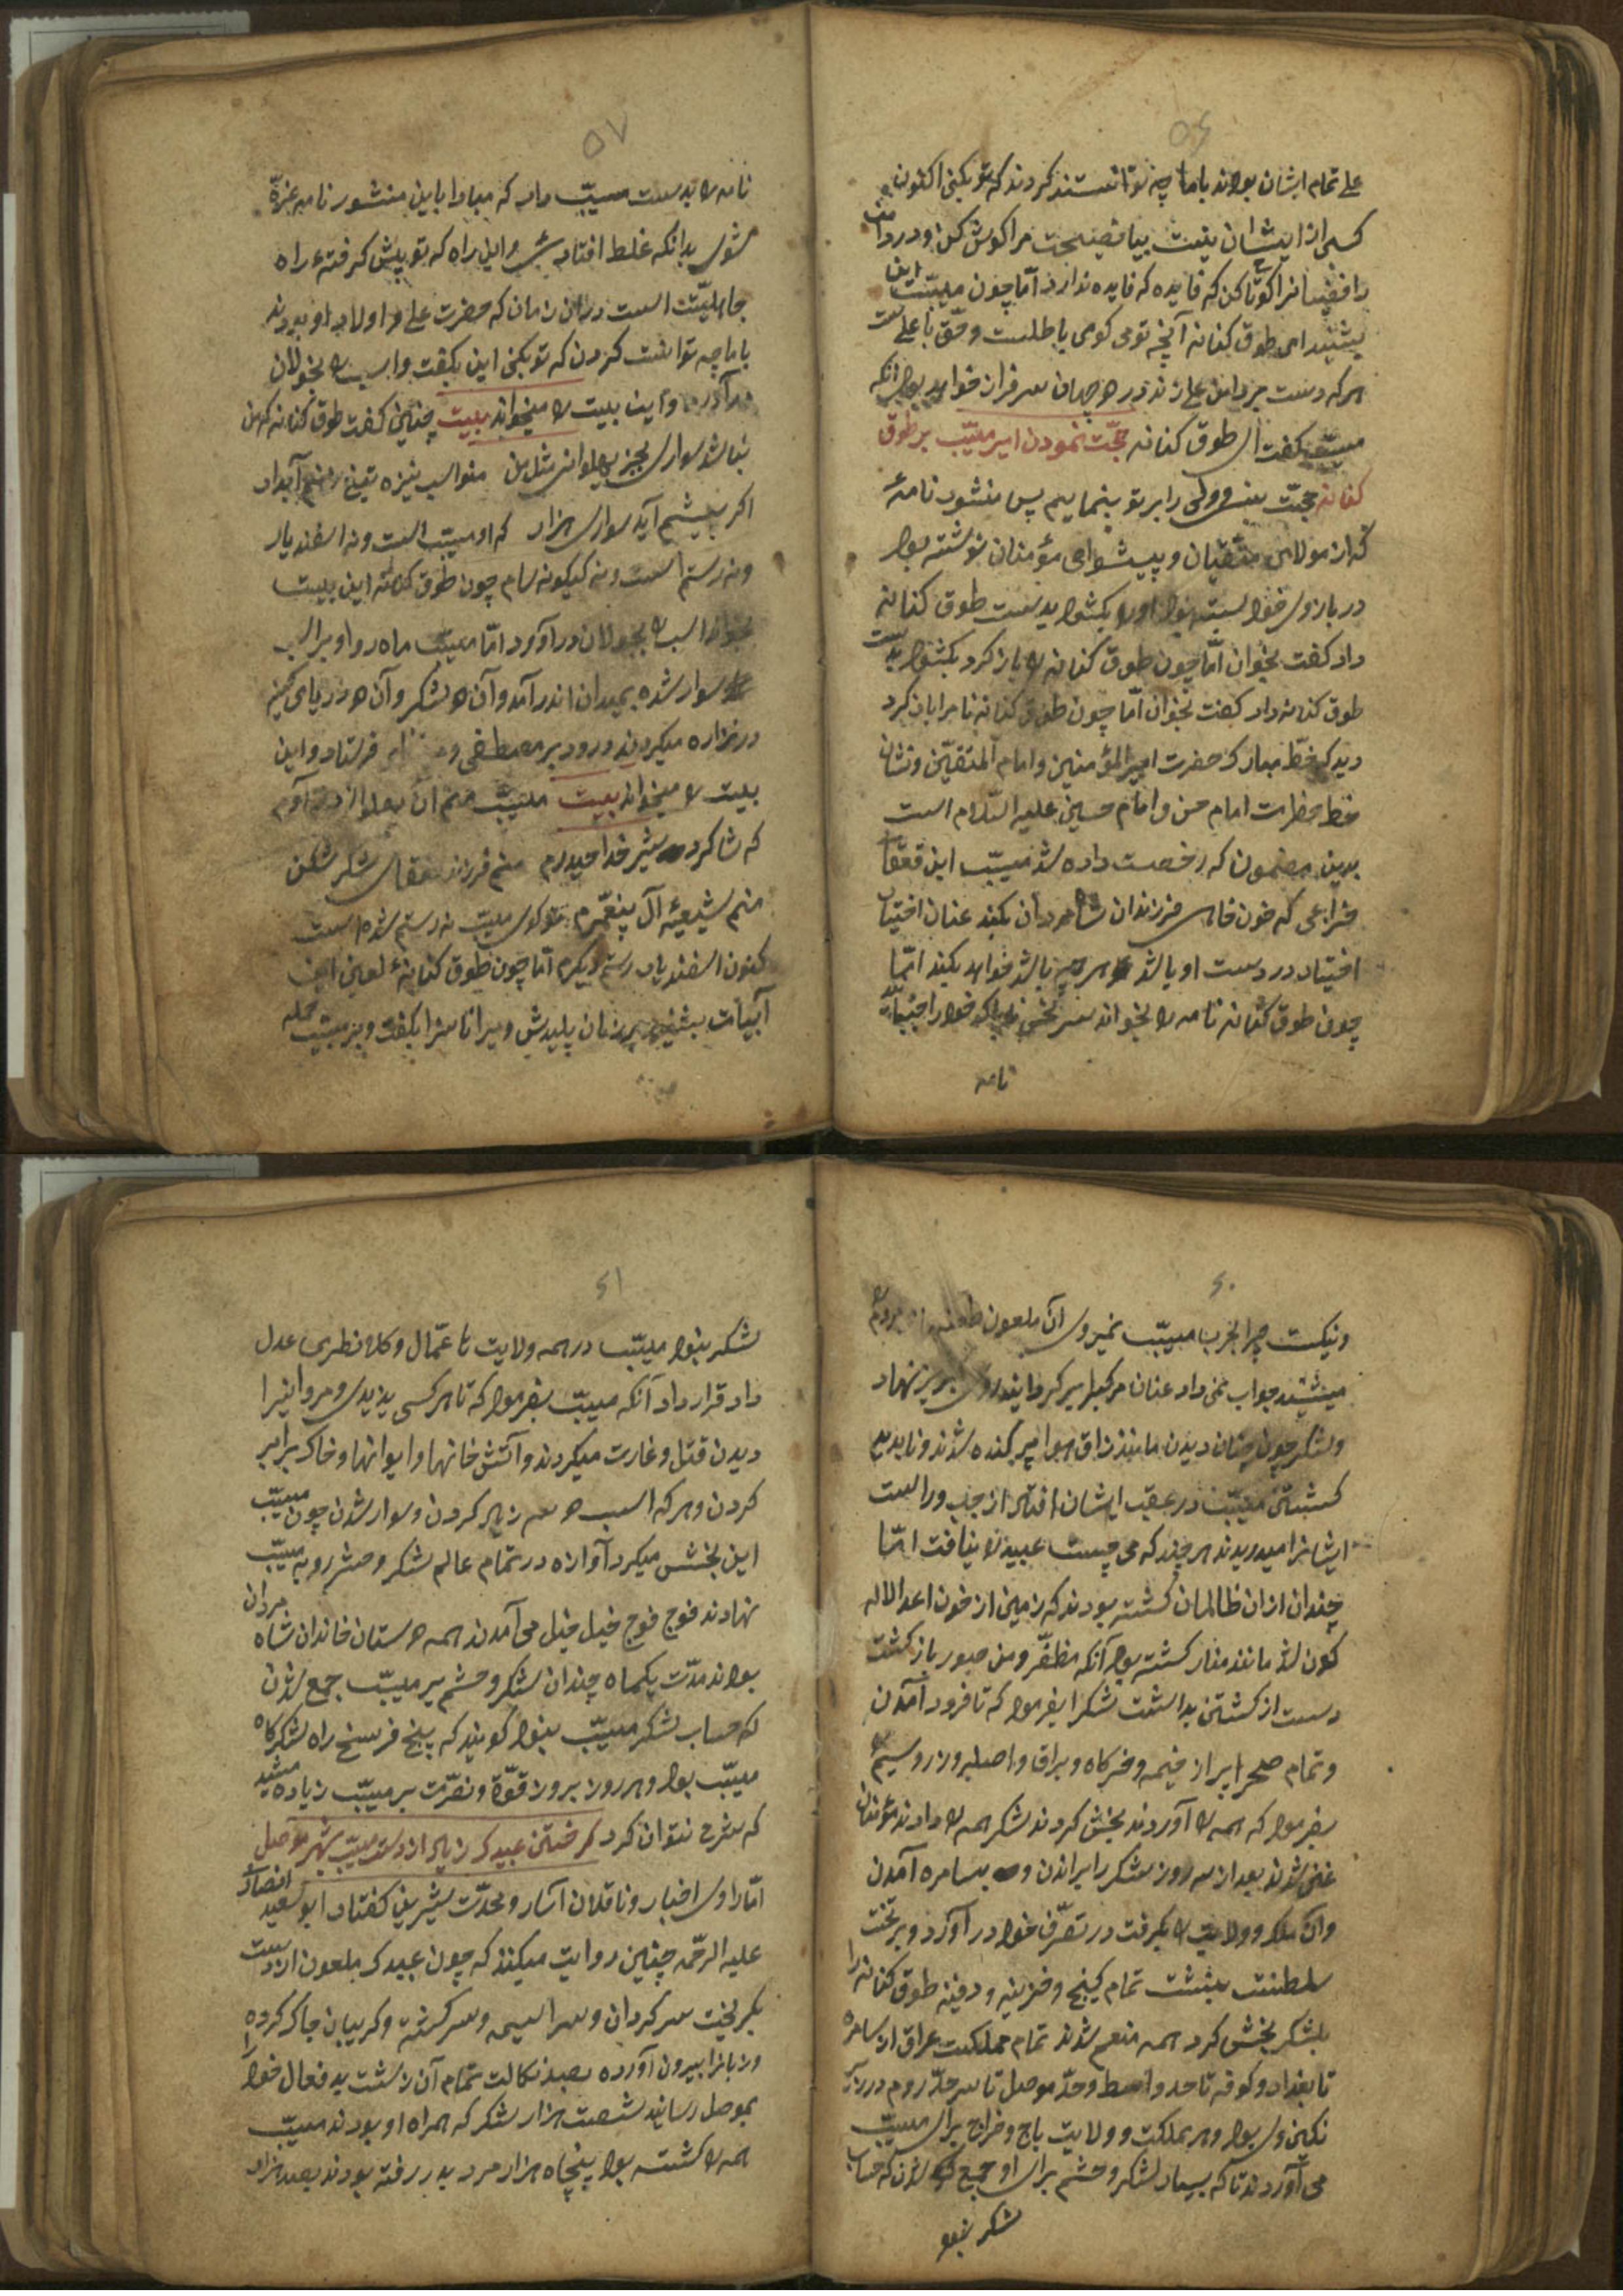 ۵۶
علی تمام ایشان بودند باما چه توانستند کردند که تو بکنی اکنون
کسی از ایشان نیست بیا نصیحت مرا کوش کن و در دامن
رافضیانرا کوتا کن که فایده که فایده ندارد امّا چون مسیّب این
بشنید ای طوق کنانه آنچه تو می کوی باطلست و حق با علی ست
هر که دست بر دامن علی زند در هر جهان سرفراز خواهد بود آنکه
مسیّب کفت ای طوق کنانه حجّت نمودن امیر مسیّب بر طوق
کنانه حجّت را بر تو بنمایم پس منشور نامهٔ
که از مولای متّقیان و پیشوای مؤمنان نوشته بود
در بازوی خود بسته بود اورا بکشود بدست طوق کنانه
داد کفت بخوان امّا چون طوق کنانه را باز کرد بکشود بدست
طوق کنانه داد کفت بخوان امّا چون طوق کنانه نامرا باز کرد
دید که خطّ مبارک حضرت امیرالمؤمنین و امام المتّقیّن و نشان
خط حظرت امام حسن و امام حسین علیه السّلام است
بدین مضمون که رخصت داده شد مسیّب ابن قعقا
خزاعی که خون خاهی فرزندان شاه مردان بکند عنان اختیار
اختیار در دست او باشد هر چه باشد خواهد بکند امّا
چون طوق کنانه نامه را بخواند سر بخود را جنبا
نامه
۵۷
نامه را بدست مسیّب داد که مبادا باین منشور نامه غرّه
شوی بدانکه غلط افتاد این راه که تو پیش کرفتهٔ راه
جاهلیّتت است در ان زمان که حضرت علی و اولاد او بودند
باما چه توانست کردن که تو بکنی این بکفت و اسب را بجولان
درآورد و این بیت را میخواند بیت چنین کفت طوق کنانه که من
نباشد سواری بجز پهلوانی مثل من منو اسب نیزه تیغ آبدار
اکر پیشم آید سواری هزار که او مسیّب است و نه اسفندیار
و نه رستم است و نه کیکونه سام چون طوق کنانه این بیت
بخواند اسب را بجولان درآورد امّا مسیّب ماه رو او بر اسب
سوار شده بمیدان اندر آمد و آن لشکر و آن دریای کینه
در نزاره میکردند درود بر مصطفی فرستاد و این
بیت را میخواند بیت مسیّب منم آن پهلوان
که شاکرد شیر خدا حیدرم منم فرزند قعقای لشکر شکن
منم شیعیهٔ آل پیغمبرم مسیّب نه رستم شده است
کنون اسفندیار رستم دیکرم امّا چون طوق کنانهٔ لعین این
آبیات بشنید بر زبان پلیدش و سزا ناسزا بکفت و بر مسیّب حمله
۶۰
و نیکست چرا بحرب مسیّب نمیروی آن ملعون طعنه از مردم
میشنید جواب نمی داد عنان مرکبرا بر کردانید روی بر بر نهاد
و لشکر چون چنان دیدن مانند زاق هوا پراکنده شدند و ناپدید
کشتی مسیّب در عقب ایشان افتاد از چپ و راست
ایشانرا میدریدند هر چند که می جست عبید را نیافت امّا
چندان از ان ظالمان کشته بودند که زمین از خون اعدا لاله
کون شد مانند منار کشته بود آنکه مظفّر و منصور باز کشت
دست از کشتن بداشت لشکرا بفرمود که تا فرود آمدن
و تمام صحرا پر از خیمه و خرکاه و براق و اصلبه و زر و سیم
بفرمود که همه را آوردند بخش کردند لشکر همه را دادند مؤمنان
غنی شدند بعد از سه روز لشکر را براندن و بسامره آمدن
وان ملک و ولایت را بکرفت در تصرّف خود در آورد و بر تخت
سلطنت بنشت تمام کینج و خزینه و دفینه طوق کنانه را
بلشکر بخش کرد همه منعم شدند تمام مملکت عراق از سامره
تا بغداد و کوفه تا حد واسط و حدّ موصل تا سرحدّ روم در زیر
نکین وی بود و هر مملکت و ولایت باج و خراج برای مسیّب
می آوردند تا که بسیار لشکر و حشم برای او جمع شدن که حساب
لشکر نبود
۶۱
لشکر نبود مسیّب در همه ولایت تا عمّال و کلانطری عدل
داد قرار داد آنکه مسیّب بفرمود که تا هر کسی یزیدی و مروانیرا
دیدن قتل و غارت میکردند و آتش خانها و ایوانها و خاک برابر
کردن و هر که اسب زیر کردن و سوار شدن چون مسیّب
این بخشش میکرد آوازه در تمام عالم لشکر و حشم رو به مسیّب
نهادند فوج فوج خیل خیل می آمدند همه دستان خاندان شاه مردان
بودند مدّت یکماه چندان لشکر و حشم بر مسیّب جمع شدن
که حساب لشکر مسیّب نبود کویند که پنج فرسخ راه لشکرکاه
مسیّب بود و هر روز بروز قوّة و نصرّت بر مسیّب زیاده میشد
که شرح نتوان کرد کرختن عبیدک زیاد از دست مسیّب بشهر موصل
امّا راوی اخبار و ناقلان آسار و محدّت شیرین کفتار ابو سعید انصار
علیه الرّحمه چنین روایت میکند که چون عبیدک ملعون از دست
بکریخت سرکردان و سراسیمه و سرکشته و کریبان چاک کرده
و زبانرا بیرون آورده بصد نکالت تمام آن زشت بد فعال خود را
بموصل رسانید شصت هزار لشکر که همراه او بودند مسیّب
همه را کشته بود پنجاه هزار مرد بدر رفته بودند بصد هزار